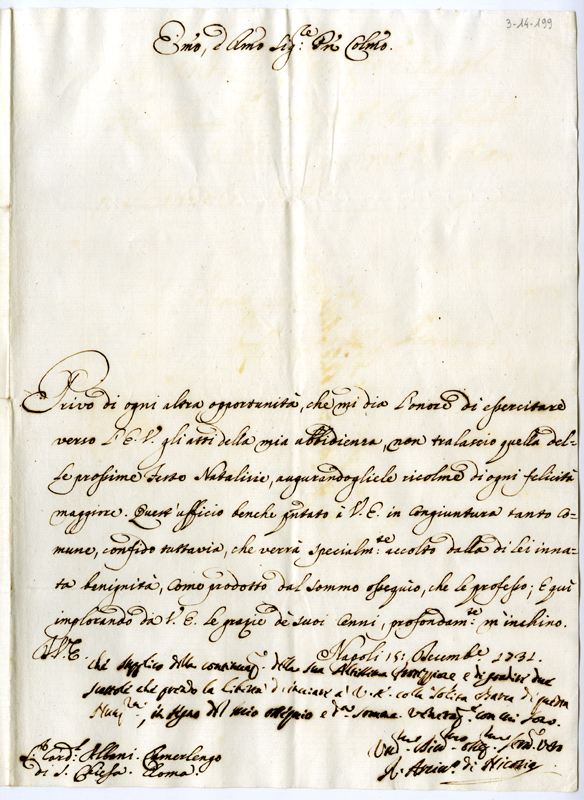 3-14-199
Emo, e Rmo Sig.re Pñ Colmo.
Privo di ogni altra opportunità, che mi dia l'onore di essercitare
verso l'E.V. gli atti della mia abbidienza, non tralascio quella del-
le prossime Feste Natalizie, augurandogliele ricolme di ogni felicità
maggiore. Quest'ufficio benche pñtato à V.E. in congiuntura tanto co-
mune, confido tuttavia, che verrà specialm.te accolto dalla di lei inna-
ta benignità, come prodotto dal sommo ossequio, che le professo; E qui
implorando da V.E. le grazie de' suoi cenni, profondam.te m'inchino.
D.V.E. Napoli 15: Decembre 1731.
che supplico della della sua e di due
scattole che prendo la libertà d'inviare a V.E. colla solita di questa
in segno del mio ossequio e somma con cui sono
S. Card.l Albani Camerlengo
di S. Chiesa. Roma.
Arciv.o di Nicosia